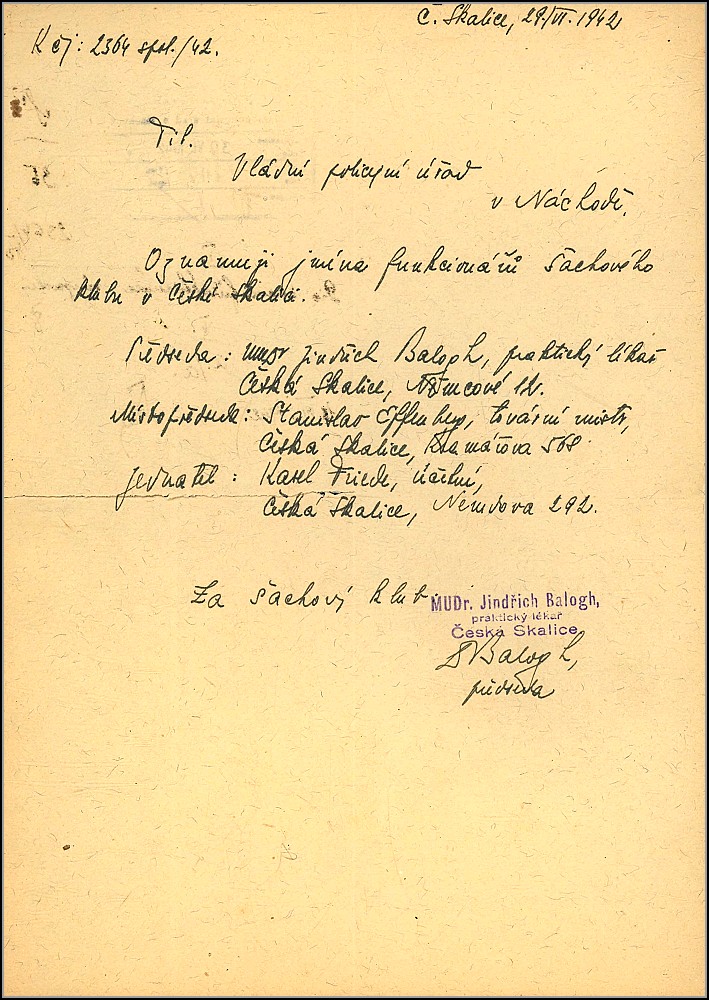 Č. Skalice, 29./VI. 1942
K čj: 2364 spol./42.
Tit.
Vládní policejní úřad
v Náchodě.
Oznamuji jména funkcionářů šachového
klubu v České Skalici.
Předseda: MUDr Jindřich Balogh, praktický lékař
Česká Skalice, Němcové
Místopředseda: Stanislav Effenberg, tovární mistr,
Česká Skalice, Křamářova 568
Jednatel: Karel Friede, účetní,
Česká Skalice, Němcova 292.
Za šachový klub
MUDr. Jindřich Balogh,
praktický lékař
Česká Skalice
DrBalogh,
předseda